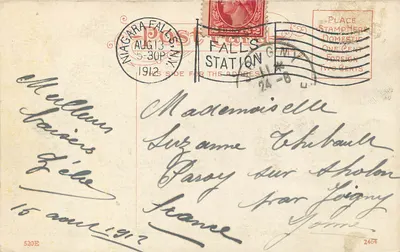 NIAGARA FALLS, N.Y.
AUG 13
5-30P
1912
FALLS
STATION
24-8
PLACE
STAMP HERE
DOMESTIC
ONE CENT
FOREIGN
TWO CENTS
SIDE FOR THE
Meilleurs
baisers
Zélie
16 août 1912
Mademoiselle
Suzanne Thibault
Passy sur Tholon
par Joigny
Yonne
France